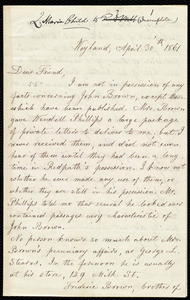 L. Maria Child to
Wayland, April 30th 1861
Dear Friend,
I am not in possession of any
facts concerning John Brown, except those
which have been published. Mrs. Brown
gave Wendell Phillips a large package
of private letters to deliver to me; but I
never received them, and did not even
hear of them till they had been a long
time in Redpath's possession. I know not
whether he was made any use of them, or
whether they are still in his possession. Mr.
Phillips told me that several he looked over
contained passages very characteristic of
John Brown.
No person knows so much about Mr.
Brown's pecuniary affairs, as George L.
Stearns. In the forenoon he is usually
at his store, 129 Milk St.
Frederic Brown, brother of